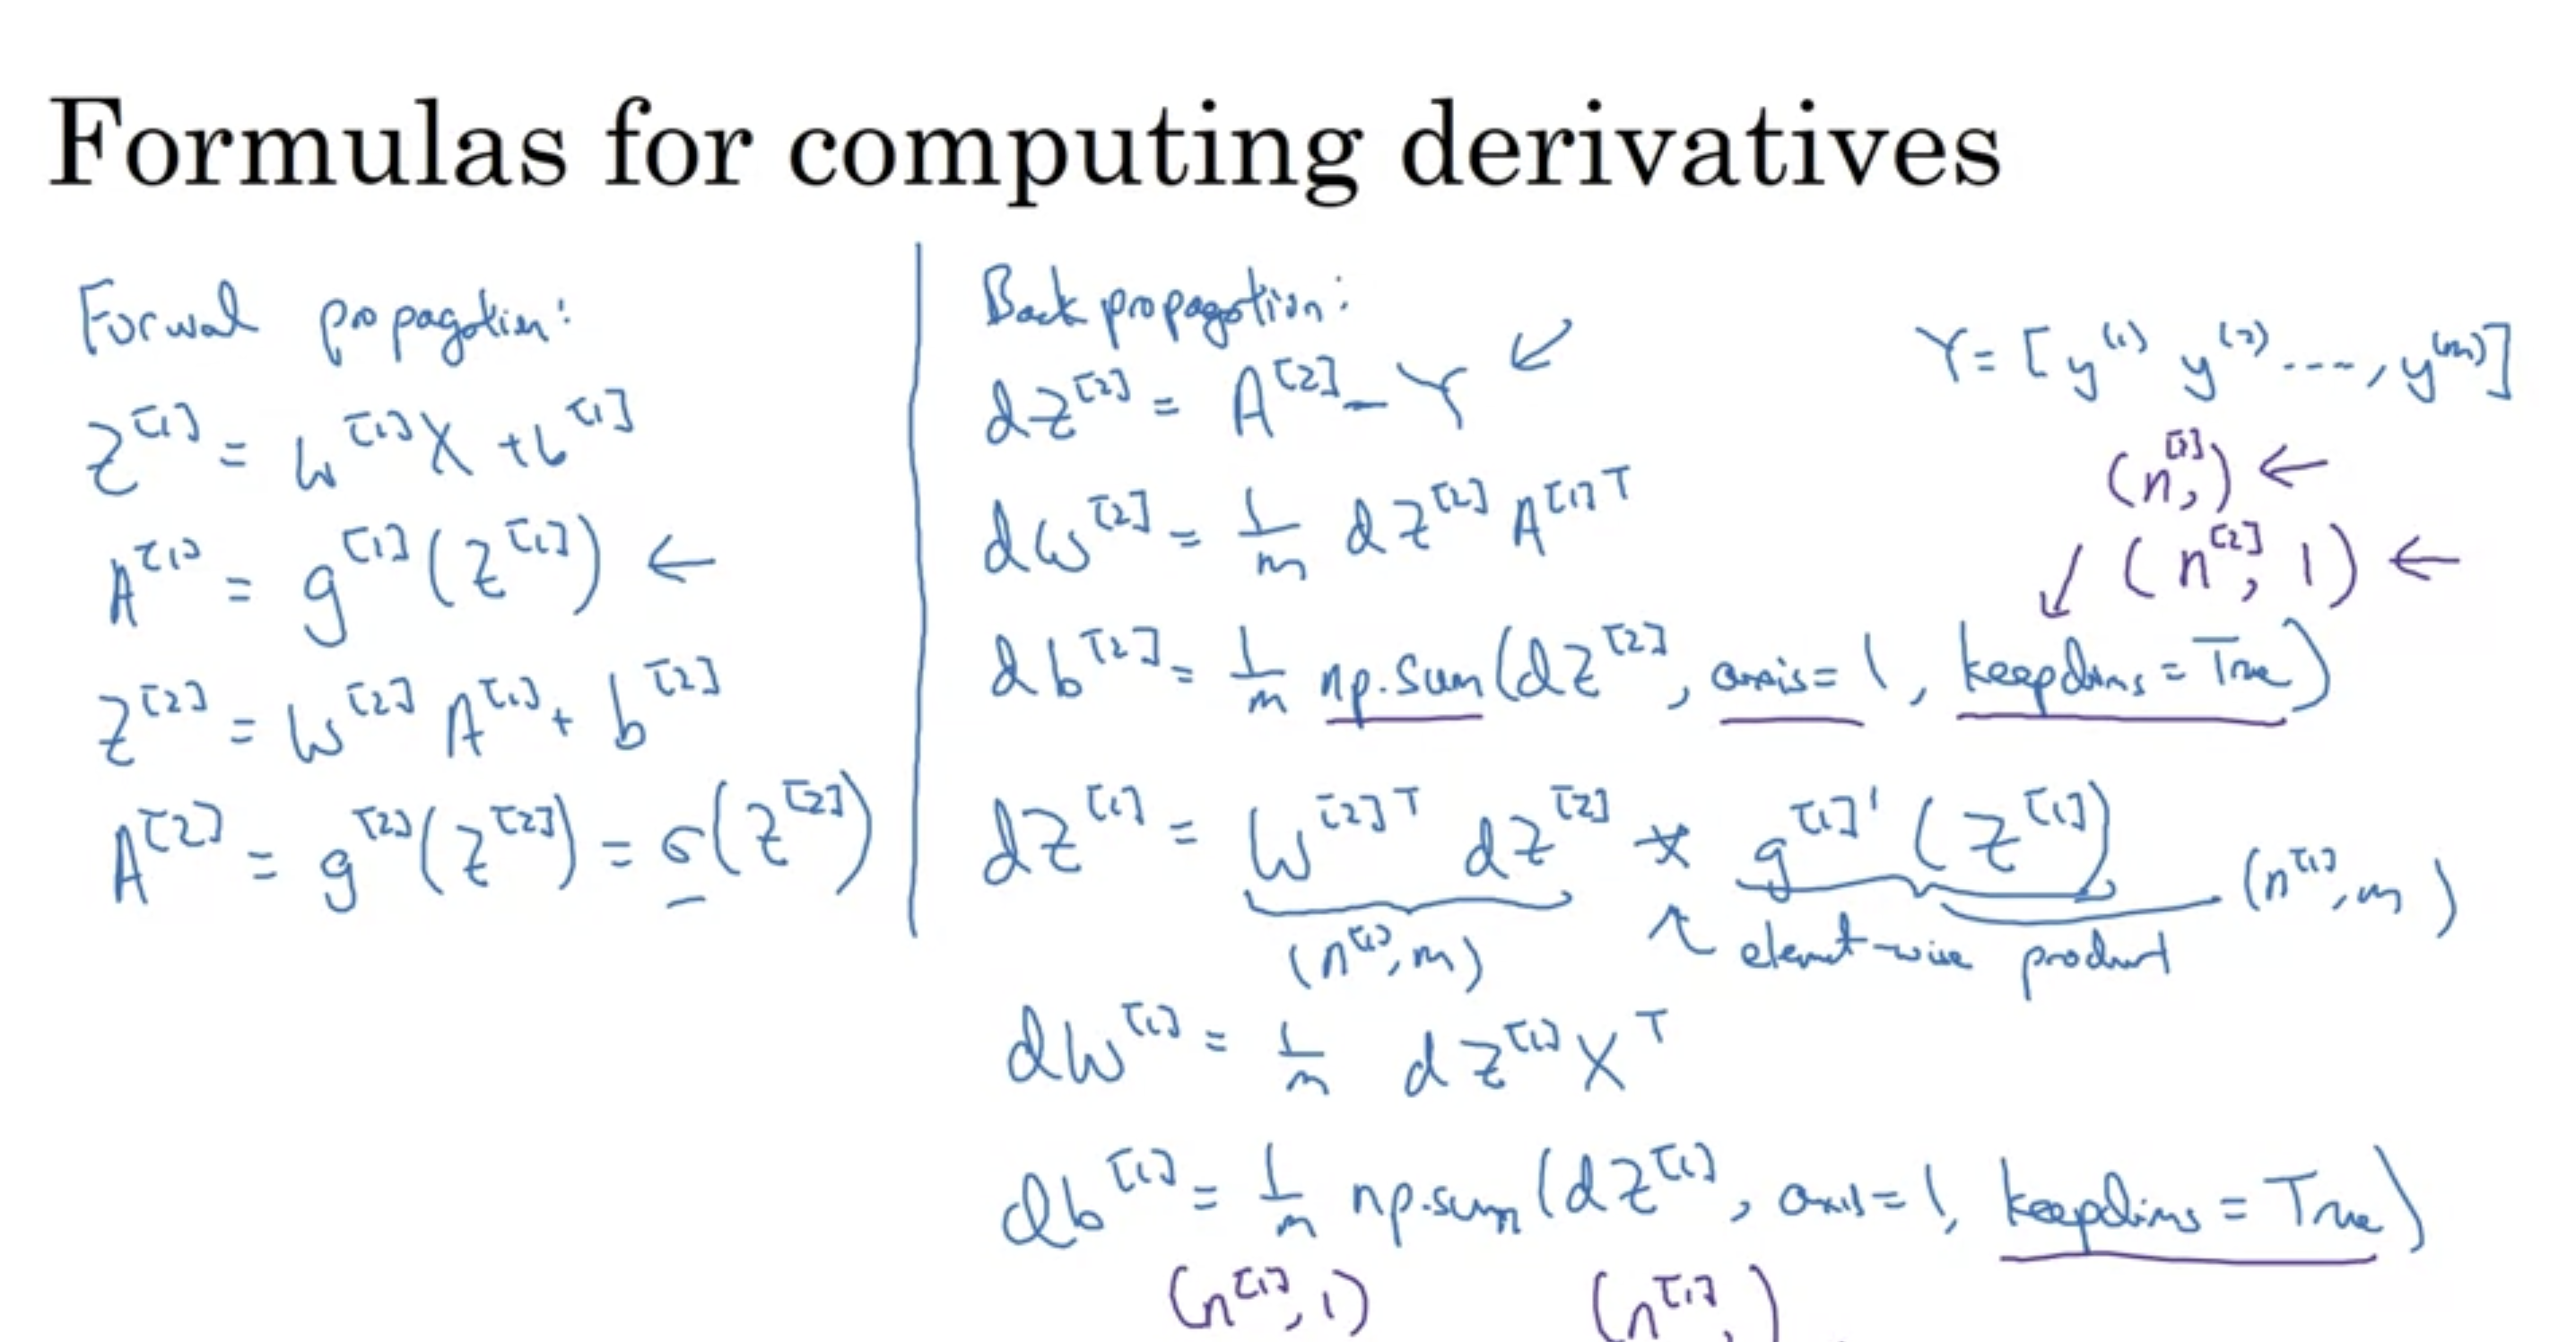 Formulas for computing derivatives
Forwal propagation:
Z^[1] = W^[1]X + b^[1]
A^[1] = g^[1](Z^[1]) ←
Z^[2] = W^[2] A^[1] + b^[2]
A^[2] = g^[2](Z^[2]) = σ(Z^[2])
Back propagation:
dZ^[2] = A^[2] - Y ↙
Y = [y^(1) y^(2) ...., y^(m)]
dW^[2] = 1/m dZ^[2] A^[1]T
(n^[2],) ←
↓ (n^[2], 1) ←
db^[2] = 1/m np.sum(dZ^[2], axis=1, keepdims=True)
dZ^[1] = W^[2]T dZ^[2] * g^[1]'(Z^[1])
(n^[1], m)
↑ element-wise product
(n^[1], m)
dW^[1] = 1/m dZ^[1] X^T
db^[1] = 1/m np.sum(dZ^[1], axis=1, keepdims=True)
(n^[1], 1)
(n^[1],)